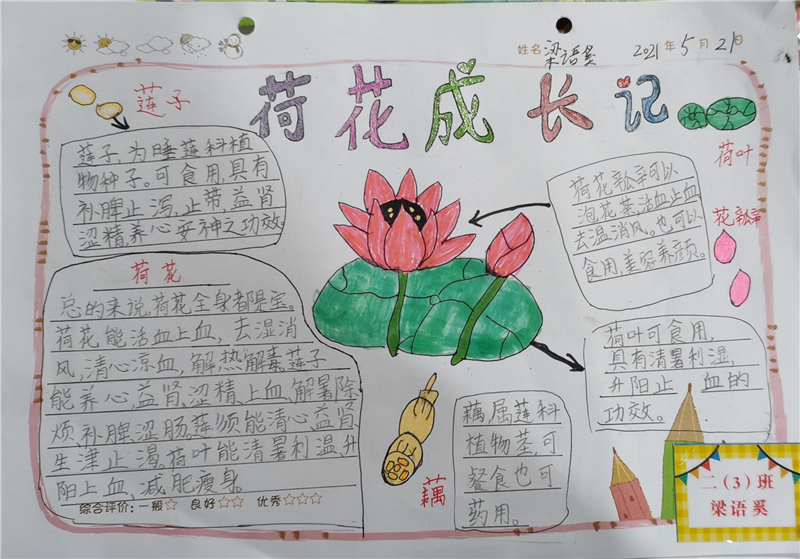 姓名 梁语奚 2021年5月21日
荷花成长记
莲子
莲子,为睡莲科植
物种子。可食用,具有
补脾止泻,止带,益肾
涩精养心安神之功效
荷花
总的来说,荷花全身都是宝。
荷花能活血上血,去湿消
风,清心凉血,解热解毒莲子
能养心,益肾,涩精,上血,解暑除
烦,补脾涩肠,莲须能清心,益肾,
生津止渴。荷叶能清暑利温,升
阳上血,减肥瘦身。
综合评价:一般☆ 良好☆☆ 优秀☆☆☆
荷花瓣可以
泡花茶,活血止血
去温消风。也可以
食用,美容养颜。
荷叶
花瓣
荷叶可食用,
具有清暑利湿,
升阳止 血的
功效。
藕
藕,属莲科
植物茎,可
餐食也可
药用。
二(3)班
梁语奚